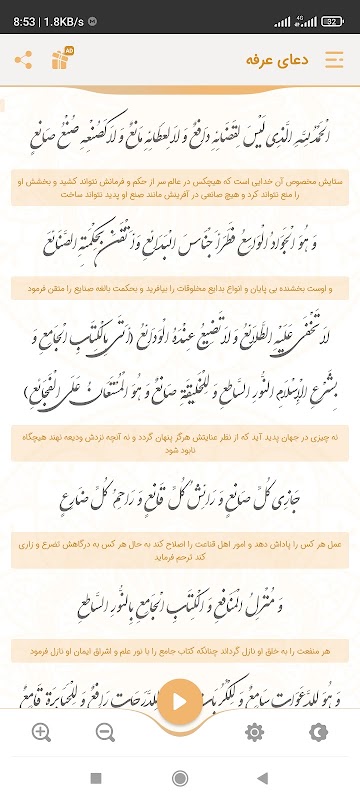 8:53 | 1.8KB/s
4G
32
دعای عرفه
AD
الْحَمْدُ لِلَّهِ الَّذِی لَیْسَ لِقَضَائِهِ دَافِعٌ وَ لَا لِعَطَائِهِ مَانِعٌ وَ لَا کَصُنْعِهِ صُنْعُ صَانِعٍ
ستایش مخصوص آن خدایی است که هیچکس در عالم سر از حکم و فرمانش نتواند کشید و بخشش او
را منع نتواند کرد و هیچ صانعی در آفرینش مانند صنع او پدید نتواند ساخت
وَ هُوَ الْجَوَادُ الْوَاسِعُ فَطَرَ أَجْنَاسَ الْبَدَائِعِ وَ أَتْقَنَ بِحِکْمَتِهِ الصَّنَائِعَ
و اوست بخشنده بی پایان و انواع بدایع مخلوقات را بیافرید و بحکمت بالغه صنایع را متقن فرمود
لَا تَخْفَی عَلَیْهِ الطَّلَائِعُ وَ لَا تَضِیعُ عِنْدَهُ الْوَدَائِعُ (أَتَی بِالْکِتَابِ الْجَامِعِ وَ
بِشَرْعِ الْإِسْلَامِ النُّورِ السَّاطِعِ وَ لِلْخَلِیقَةِ صَانِعٌ وَ هُوَ الْمُسْتَعَانُ عَلَی الْفَجَائِعِ)
نه چیزی در جهان پدید آید که از نظر عنایتش هرگز پنهان گردد و نه آنچه نزدش ودیعه نهند هیچگاه
نابود شود
جَازِی کُلِّ صَانِعٍ وَ رَایِشُ کُلِّ قَانِعٍ وَ رَاحِمُ کُلِّ ضَارِعٍ
عمل هر کس را پاداش دهد و امور اهل قناعت را اصلاح کند به حال هر کس به درگاهش تضرع و زاری
کند ترحم فرماید
وَ مُنْزِلُ الْمَنَافِعِ وَ الْکِتَابِ الْجَامِعِ بِالنُّورِ السَّاطِعِ
هر منفعت را به خلق او نازل گرداند چنانکه کتاب جامع را با نور علم و اشراق ایمان او نازل فرمود
وَ هُوَ لِلدَّعَوَاتِ سَامِعٌ وَ لِلْکُرُبَاتِ لِلدَّرَجَاتِ رَافِعٌ وَ لِلْجَبَابِرَةِ قَامِعٌ